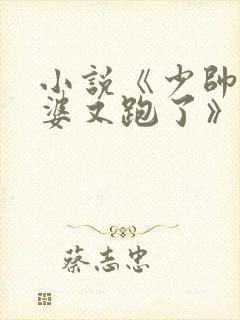 小説《少帥
婆又跑了》
蔡志忠